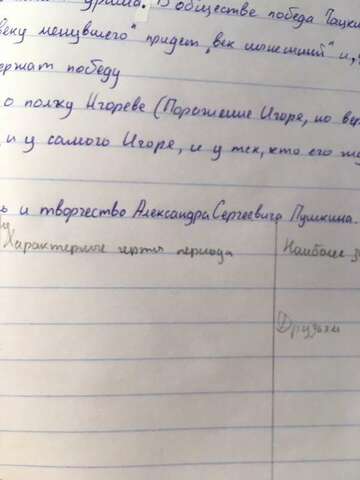 драма. В обществе победа Чацки
веку минувшего" придет "век нынешний" и
ержат победу
о полку Игореве (Поражение Игоря, но вер
и у самого Игоря, и у тех, кто его
ь и творчество Александра Сергеевича Пушкина.
Характерные черты периода
Наиболее
Друзьям